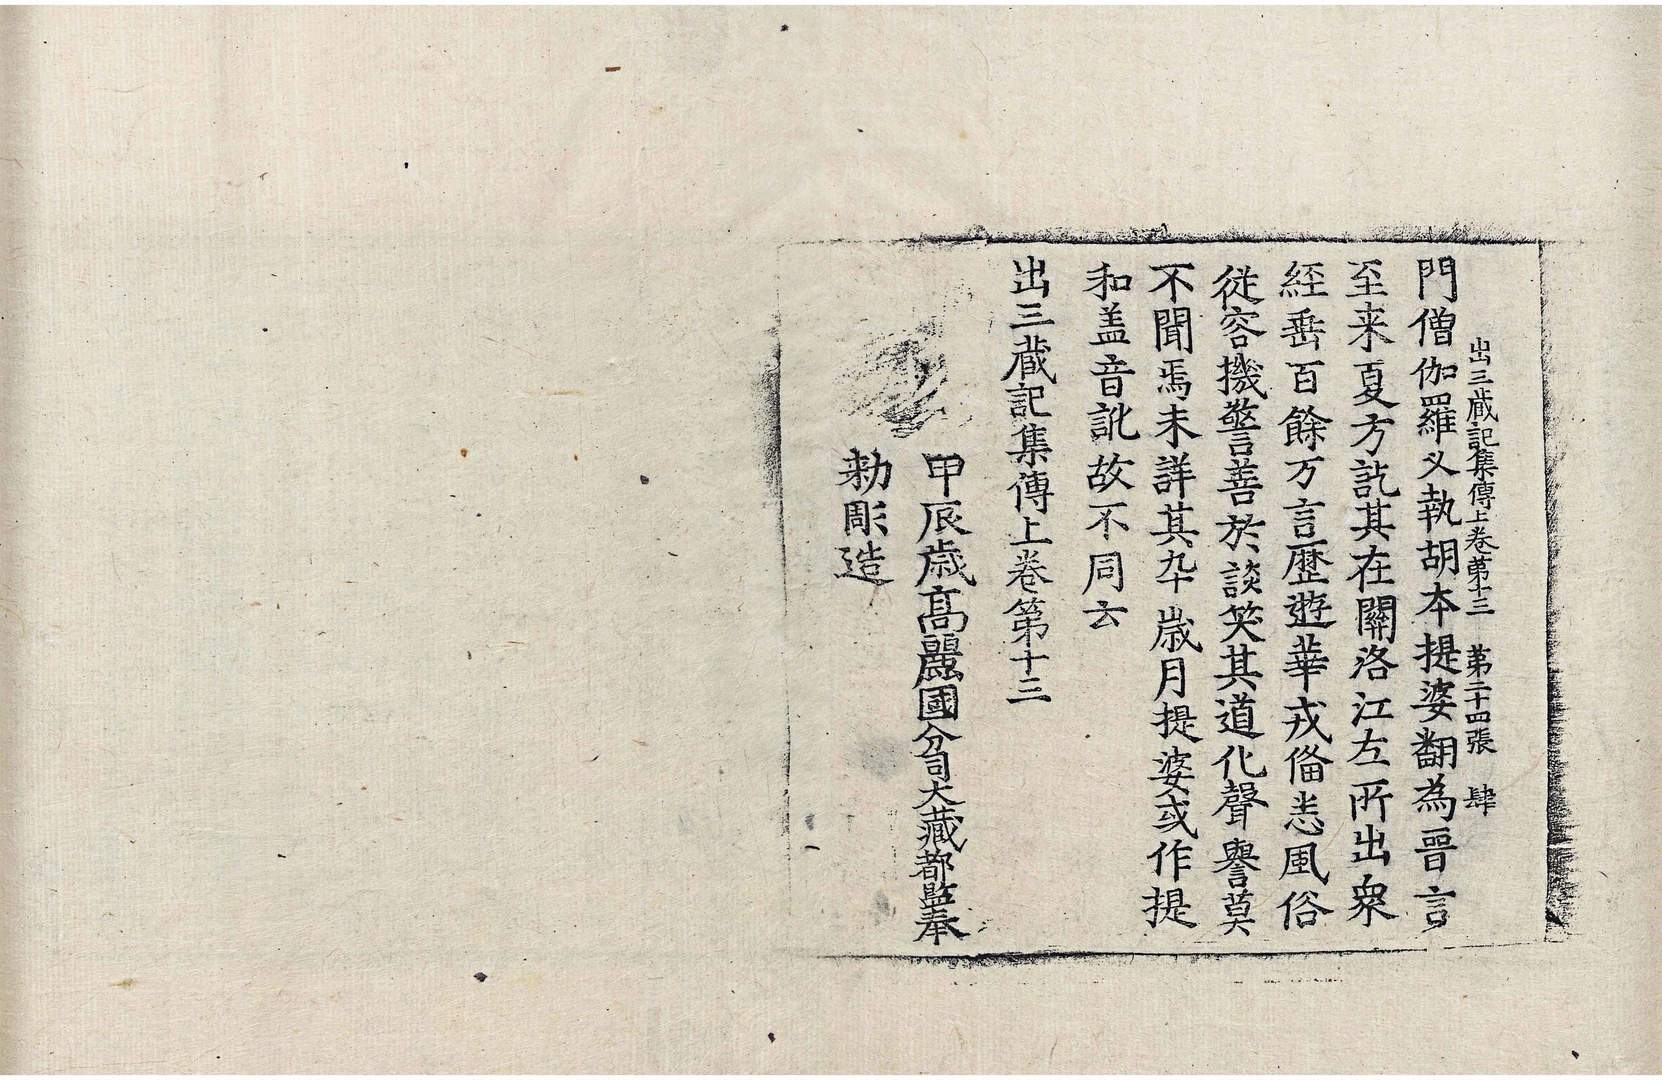 出三蔵記集傳上卷苐十三　苐二十四張　肆
門僧伽羅乂執胡夲提婆翻為晉言
至来夏方訖其在關洛江左所出衆
經垂百餘万言歷遊華戎俻悉風俗
從容機警善於談笑其道化聲譽莫
不聞焉未詳其卆歲月提婆或作提
和盖音訛故不同云
出三蔵記集傳上卷苐十三
甲辰歳髙麗國分司大藏都監奉
勑彫造